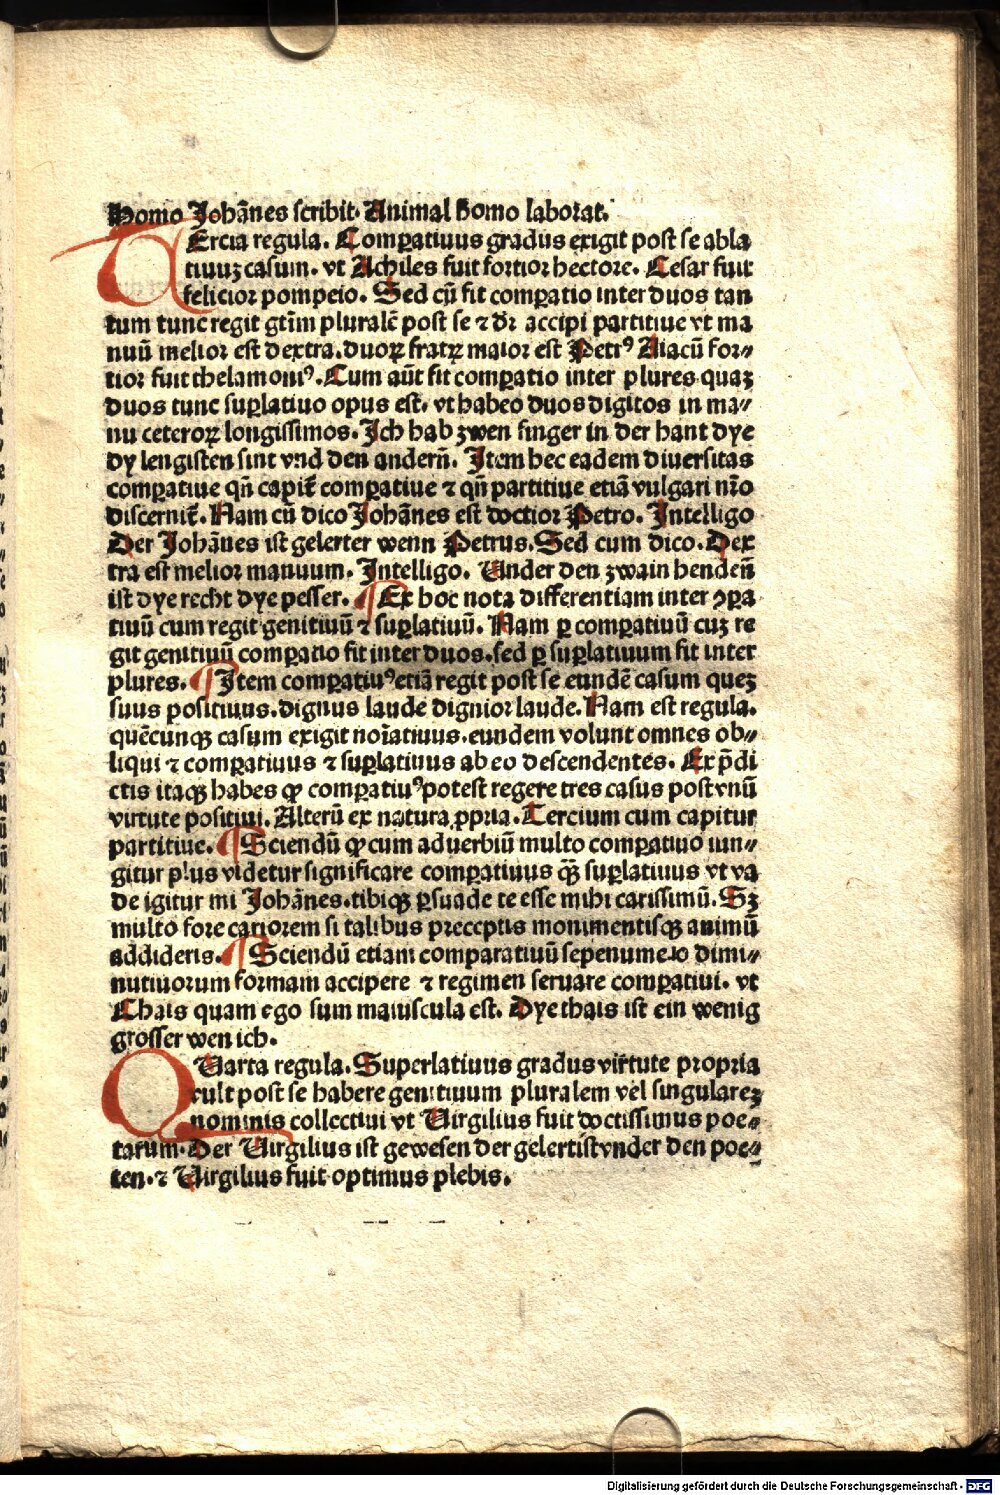 Homo Johānes scribit. Animal homo laborat.
TErcia regula. Comꝑatiuus gradus exigit post se abla
tiuuꝫ casum. vt Achiles fuit fortior hectore. Cesar fuit
felicior pompeio. Sed cū fit comꝑatio inter duos tan
tum tunc regit gtīm pluralē post se ⁊ dr̄ accipi partitiue vt ma
nuū melior est dextra. duoꝝ fratꝝ maior est Petrꝰ Aiacū for⸗
tior fuit thelamoniꝰ. Cum aūt fit comꝑatio inter plures quaꝫ
duos tunc suꝑlatiuo opus est. vt habeo duos digitos in ma⸗
nu ceteroꝝ longissimos. Ich hab zwen finger in der hant dye
dy lengisten sint vnd den andern̄. Item hec eadem diuersitas
comꝑatiue qn̄ capit̄ comꝑatiue ⁊ qn̄ partitiue etiā vulgari nr̄o
discernit̄. Nam cū dico Johānes est doctior Petro. Intelligo
Der Johānes ist gelerter wenn Petrus. Sed cum dico. Dex
tra est melior manuum. Intelligo. Under den zwain henden̄
ist dye recht dye pesser. ¶ Ex hoc nota differentiam inter ꝯꝑa
tiuū cum regit genitiuū ⁊ suꝑlatiuū. Nam ꝑ comꝑatiuū cuꝫ re
git genitiuū comꝑatio fit inter duos. sed ꝑ suꝑlatiuum fit inter
plures. ¶ Item comꝑatiuꝰ etiā regit post se eundē casum queꝫ
suus positiuus. dignus laude dignior laude. Nam est regula.
quēcunqꝫ casum exigit noīatiuus. eundem volunt omnes ob⸗
liqui ⁊ comꝑatiuus ⁊ suꝑlatiuus ab eo descendentes. Ex p̄di
ctis itaqꝫ habes ꝙ comꝑatiuꝰ potest regere tres casus post vnū
virtute positiui. Alterū ex natura ꝓpria. Tercium cum capitur
partitiue. ¶ Sciendū ꝙ cum aduerbiū multo comꝑatiuo iun⸗
gitur plus videtur significare comꝑatiuus qꝫ̄ suꝑlatiuus vt va
de igitur mi Johānes. tibiqꝫ ꝑsuade te esse mihi carissimū. Sꝫ
multo fore cariorem si talibus preceptis monimentisqꝫ animū
addideris. ¶ Sciendū etiam comparatiuū sepenumero dimi⸗
nutiuorum formam accipere ⁊ regimen seruare comꝑatiui. vt
Thais quam ego sum maiuscula est. Dye thais ist ein wenig
grosser wen ich.
QUarta regula. Superlatiuus gradus virtute propria
vult post se habere genitiuum pluralem vel singulareꝫ
nominis collectiui vt Uirgilius fuit doctissimus poe⸗
tarum. Der Uirgilius ist gewesen der gelertist vnder den poe⸗
ten. ⁊ Uirgilius fuit optimus plebis.
Digitalisierung gefördert durch die Deutsche Forschungsgemeinschaft - DFG